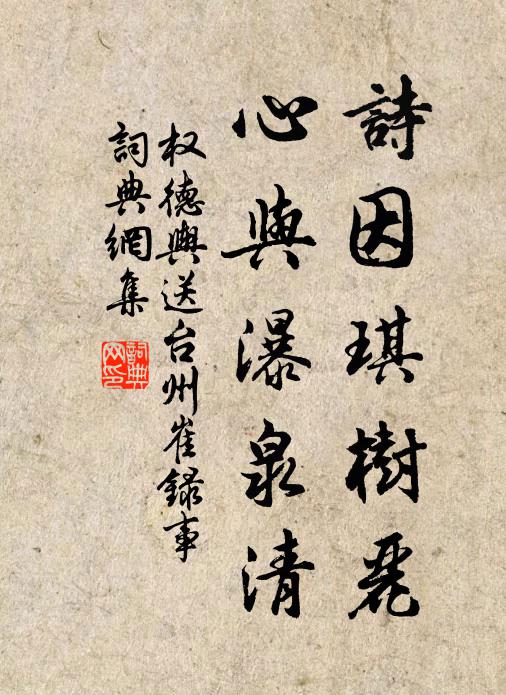 詩因琪樹麗
心與瀑泉清
权德輿送台州崔錄事
詞典網集
詞典网印